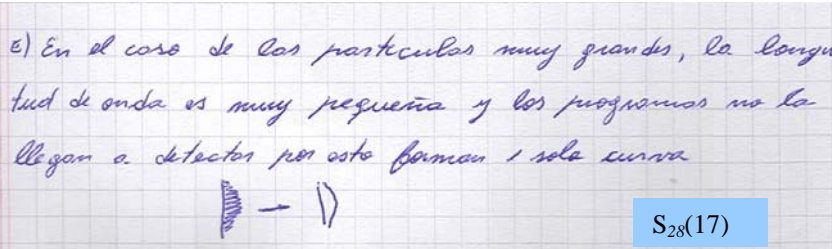 E) En el caso de las partículas muy grandes, la longi
tud de onda es muy pequeña y los programas no la
llegan a detectar por esto forman 1 sola curva
S28(17)